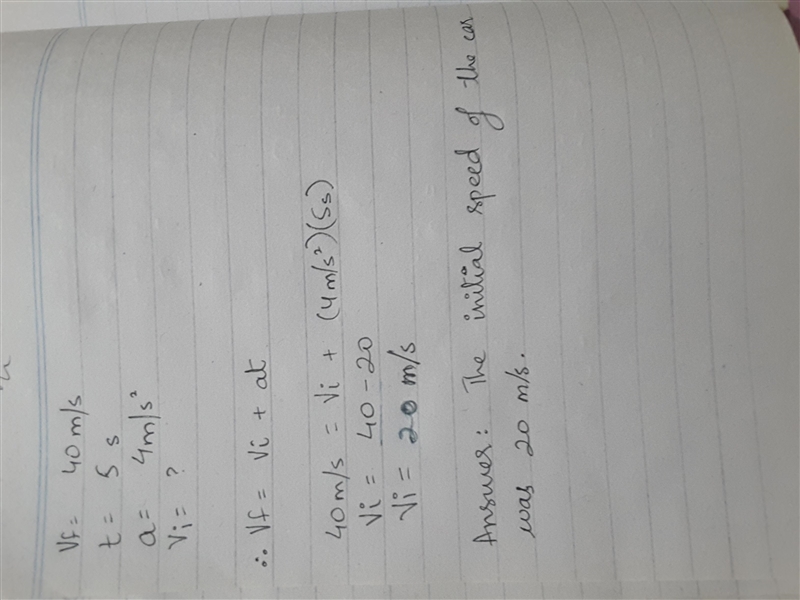 Vf = 40 m/s
t = 5 s
a = 4 m/s²
Vi = ?
∴ Vf = Vi + at
40 m/s = Vi + (4 m/s²)(5s)
Vi = 40 - 20
Vi = 20 m/s
Answer: The initial speed of the car
was 20 m/s.